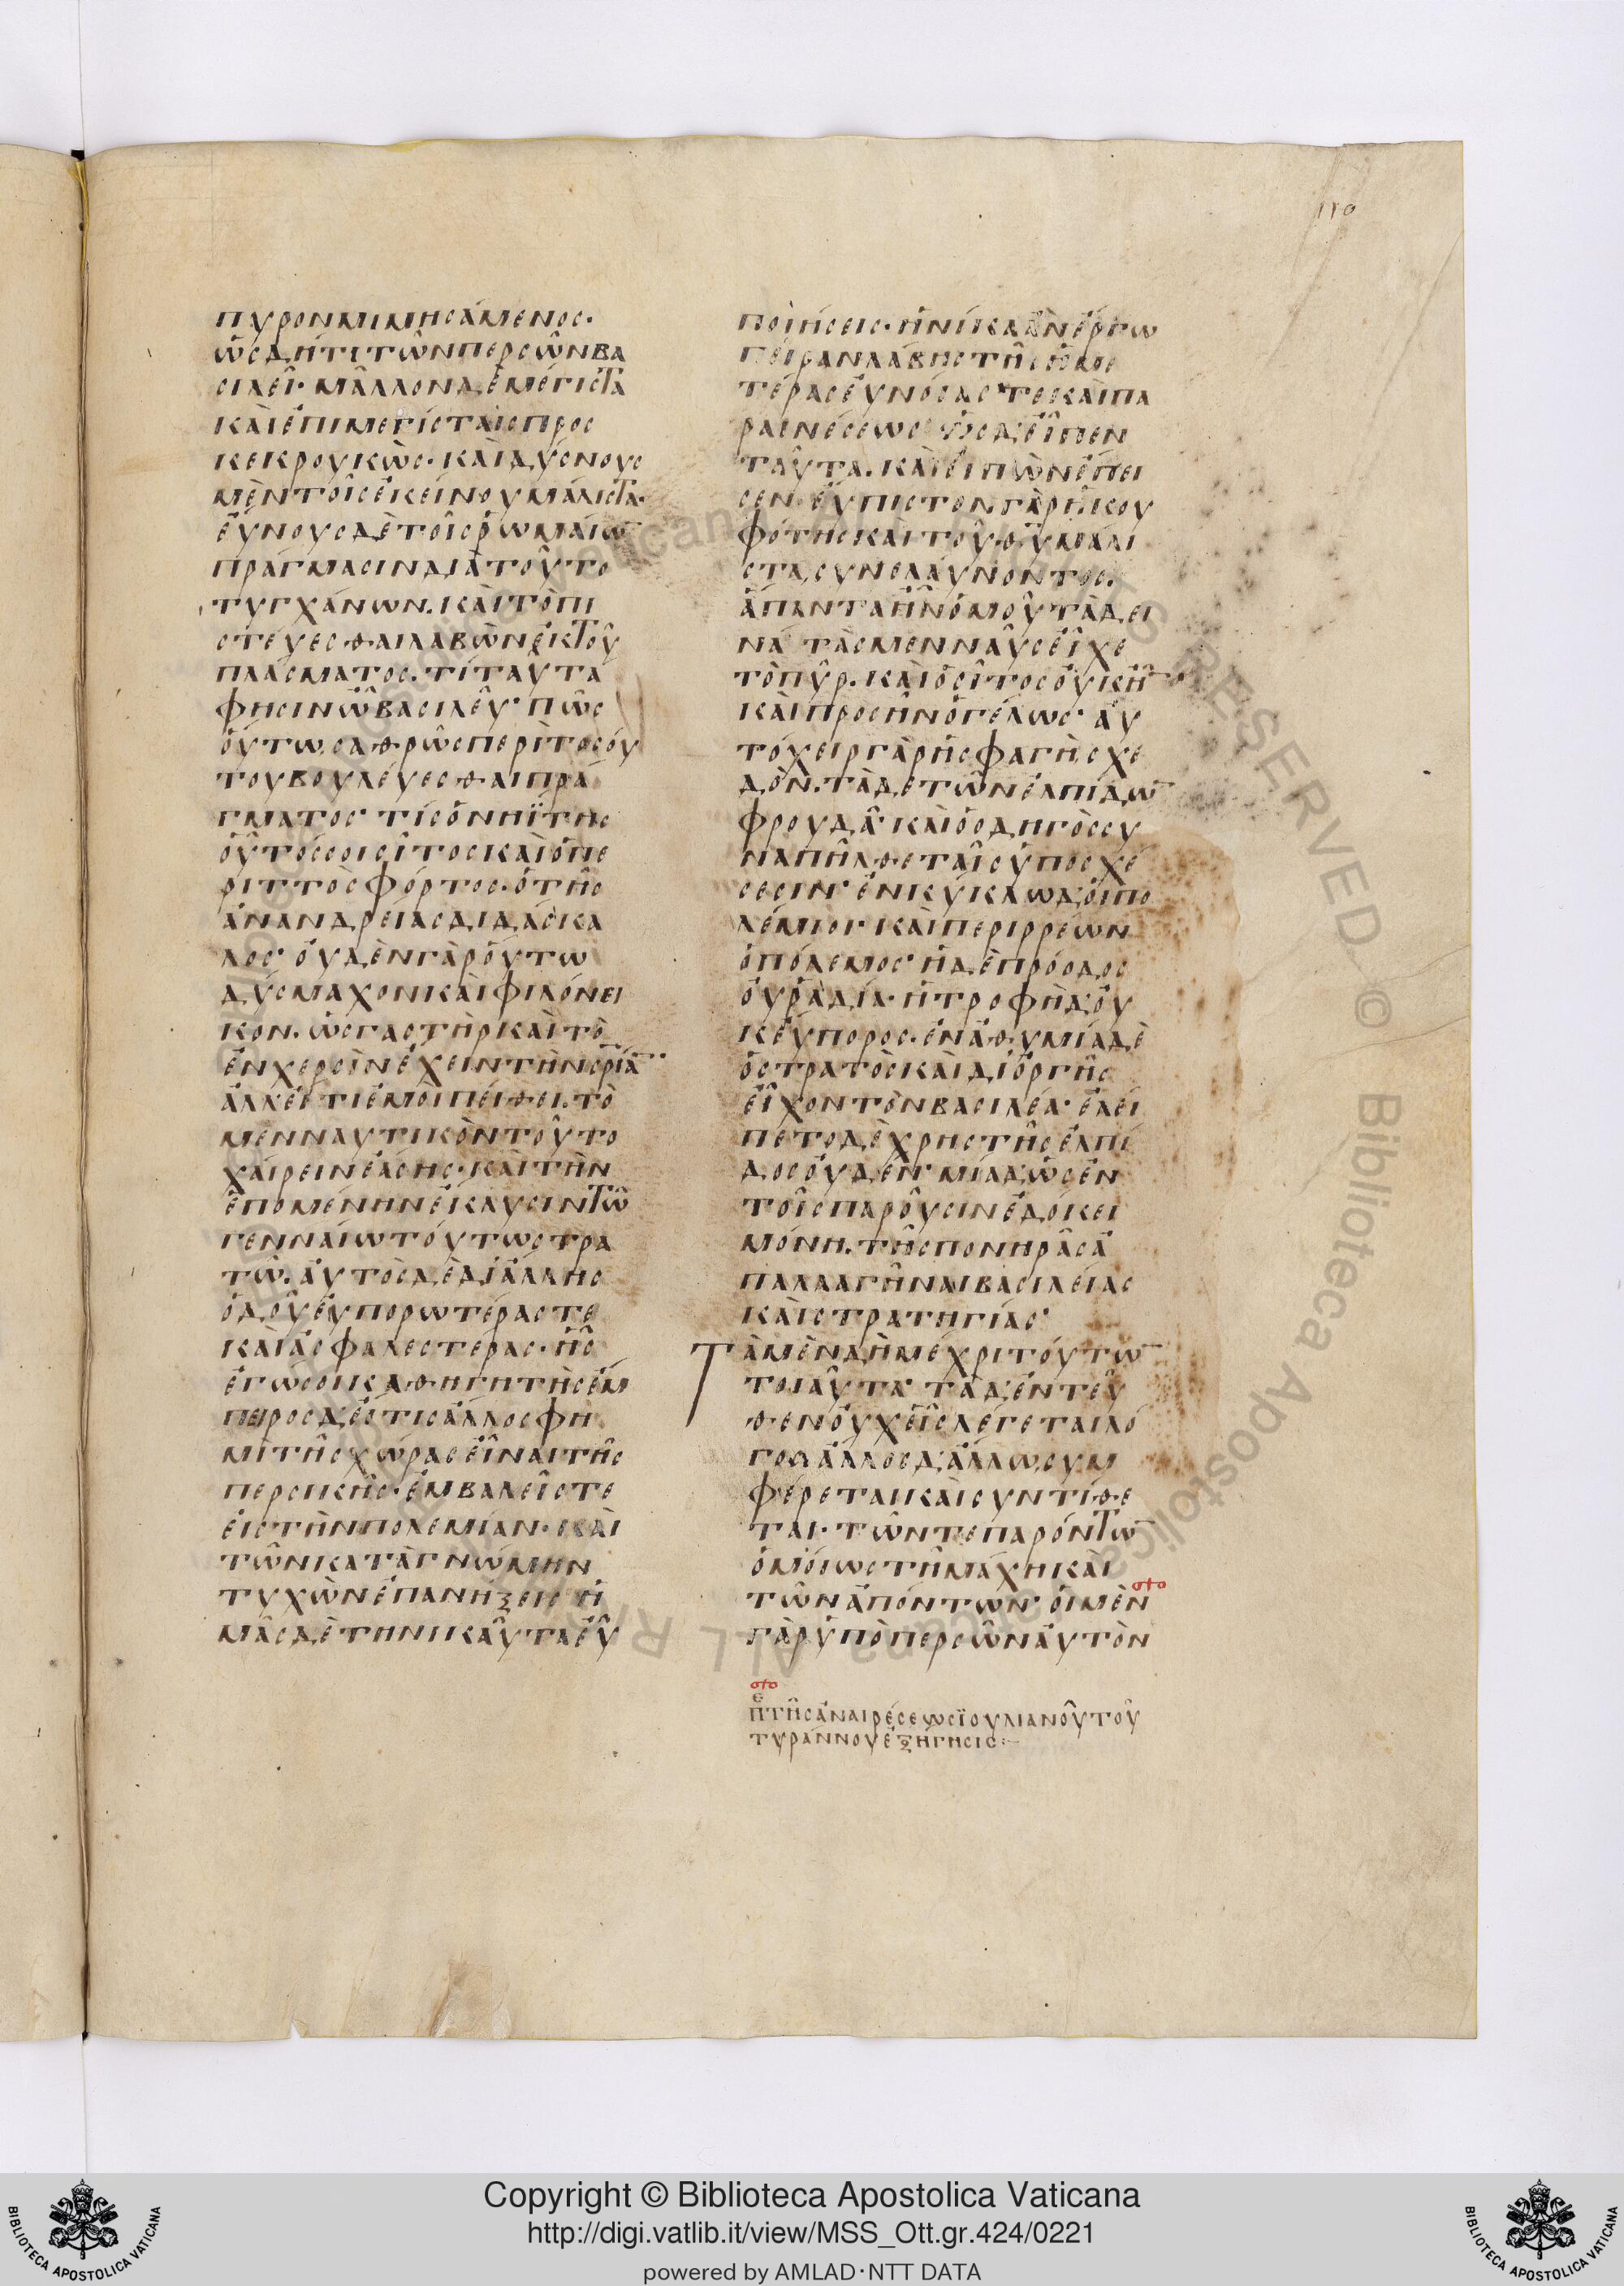 110
πυρον μιμησάμενος·
ὡς δή τι τῶν περσῶν βα
σιλεῖ· μᾶλλον δὲ μέγιστα
καὶ ἐπὶ μεγίσταις προς
κεκρουκὼς· καὶ δύσνους
μὲν τοῖς ἐκείνου μάλιστα·
εὔνους δὲ τοῖς ῥωμαίω̅
πράγμασιν διὰ τοῦτο
τυγχάνων. καὶ τὸ πι
στεύεσθαι λαβὼν ἐκ τοῦ
πλάσματος. τί ταῦτα
φησιν ὦ βασιλεῦ· πῶς
οὕτω σαθρῶς περὶ τοσού
του βουλεύεσθαι πρά
γματος· τίς ὁν ηϊτης
οὗτός σοι σῖτος καὶ ὁ πε
ριττὸς φόρτος· ὁ τῆς
ἀνανδρειας διδάσκα
λος· οὐδὲν γὰρ οὕτω
δύσμαχον καὶ φιλόνει
κον. ὡς γαστὴρ καὶ τὸ
ἐν χερσὶν ἔχειν τὴν σρίαν·
ἀλλ' εἴ τι ἐμοὶ πείθει. τὸ
μεν ναυτικὸν τοῦτο
χαίρειν ἐάσης· καὶ τὴν
ἑπομένην ἔκλυσιν τῶ
γενναίω τούτω στρα
τῶ. αὐτὸς δὲ δι' ἄλλης
ὁδοῦ εὐπορωτέρας τε
καὶ ἀσφαλεστέρας· ἧς
ἐγώ σοι καθηγητὴς ἔμ
πειρος δ' εἴ τις ἄλλος φη
μὶ τῆς χώρας εἶναι τῆς
περσικῆς· ἐμβαλεῖς τε
εἰς τὴν πολεμίαν· καὶ
τῶν κατὰ γνώμην
τυχὼν ἐπανήξεις ἡ
μᾶς δὲ τηνικαῦτα εὖ
ποιήσεις· ἡνίκα ἂν ἔργω
πεῖραν λάβης τῆς ἡμε
τέρας εὐνοίας τε καὶ πα
ραινέσεως ὡς δ' εἶπεν
ταῦτα. καὶ εἰπὼν ἔπει
σεν· εὔπιστον γὰρ ἡ κου
φότης καὶ τοῦ θ̅υ̅ μάλι
στα, συνελαύνοντος.
ἅπαντα ἦν ὁμοῦ τὰ δει
νά τὰς μεν ναῦς εἶχε
τὸ πῦρ. καὶ ὁ σῖτος οὐκ ἦ̅
καὶ προσῆν ὁ γέλως· αὐ
τόχειρ γὰρ ἡ σφαγὴ, σχε
δὸν. τὰ δε τῶν ἐλπίδω̅
φρουδα· καὶ ὁ ὁδηγὸς συ
ναπῆλθε ταῖς ὑποσχέ
σεσιν· ἐν κύκλω δ' οἱ πο
λέμιοι· καὶ περιρρέων
ὁ πόλεμος· ἡ δὲ πρόοδος
οὐ ῥαδία· ἡ τροφὴ δ' οὐ
κ εὔπορος· ἐν ἀθυμία δὲ
ὁ στρατὸς καὶ δι' ὀργῆς
εἶχον τὸν βασιλέα· ἐλεί
πετο δὲ χρηστῆς ἐλπί
δος οὐδέν· μία δ' ὡς ἐν
τοῖς παροῦσιν ἐδόκει
μόνη. τῆς πονηρᾶς ἀ
παλλαγῆναι βασιλείας
καὶ στρατηγίας·
Τὰ μὲν δὴ μέχρι τούτω̅
τοιαῦτα· τὰ δ' ἐντεῦ
θεν οὐχ εἷς λέγεται λό
γος ἄλλος δ' ἄλλω συμ
φέρεται καὶ συντίθε
ται· τῶν τε παρόντω̅
ὁμοίως τῆ μάχη καὶ
τῶν ἀπόντων· οἱ μὲν
γὰρ ὑπὸ περσῶν αὐτὸν
ε̅π̅ τῆς ἀναιρέσεως ϊουλιανοῦ τοῦ
τυράννου ἐξήγησις:—
Copyright © Biblioteca Apostolica Vaticana
http://digi.vatlib.it/view/MSS_Ott.gr.424/0221
powered by AMLAD·NTT DATA
BIBLIOTECA APOSTOLICA VATICANA
BIBLIOTECA APOSTOLICA VATICANA